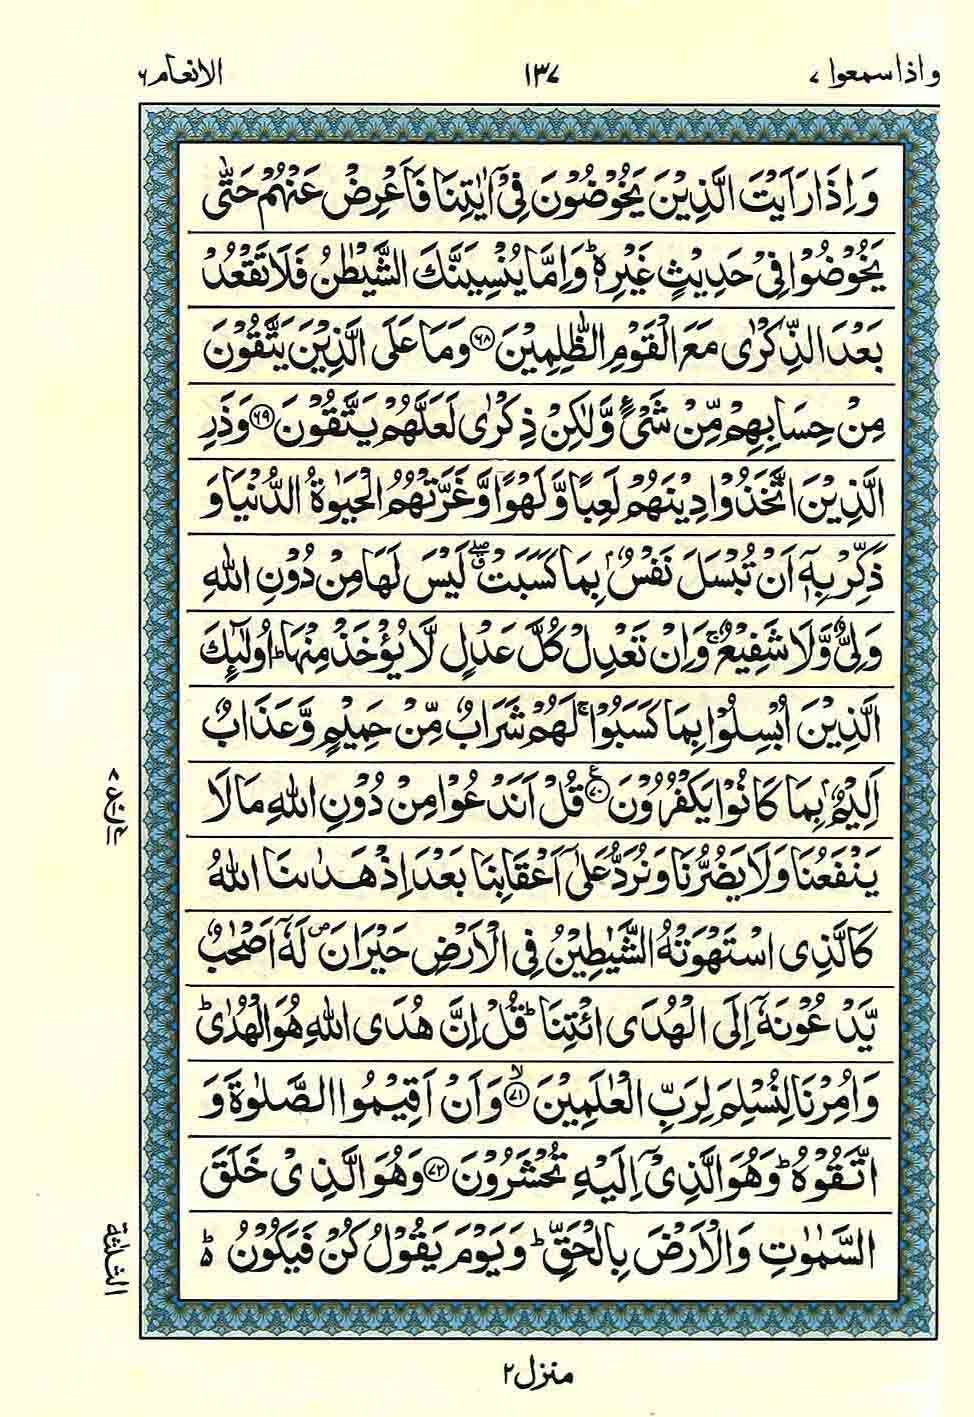 واذاسمعوا ٧
١٣٧
الانعام ٦
وَ اِذَا رَاَیۡتَ الَّذِیۡنَ یَخُوۡضُوۡنَ فِیۡۤ اٰیٰتِنَا فَاَعۡرِضۡ عَنۡہُمۡ حَتّٰی
یَخُوۡضُوۡا فِیۡ حَدِیۡثٍ غَیۡرِہٖ ؕ وَ اِمَّا یُنۡسِیَنَّکَ الشَّیۡطٰنُ فَلَا تَقۡعُدۡ
بَعۡدَ الذِّکۡرٰی مَعَ الۡقَوۡمِ الظّٰلِمِیۡنَ ﴿٦٨﴾ وَ مَا عَلَی الَّذِیۡنَ یَتَّقُوۡنَ
مِنۡ حِسَابِہِمۡ مِّنۡ شَیۡءٍ وَّ لٰکِنۡ ذِکۡرٰی لَعَلَّہُمۡ یَتَّقُوۡنَ ﴿٦٩﴾ وَ ذَرِ
الَّذِیۡنَ اتَّخَذُوۡا دِیۡنَہُمۡ لَعِبًا وَّ لَہۡوًا وَّ غَرَّتۡہُمُ الۡحَیٰوۃُ الدُّنۡیَا وَ
ذَکِّرۡ بِہٖۤ اَنۡ تُبۡسَلَ نَفۡسٌۢ بِمَا کَسَبَتۡ ٭ۖ لَیۡسَ لَہَا مِنۡ دُوۡنِ اللّٰہِ
وَلِیٌّ وَّ لَا شَفِیۡعٌ ۚ وَ اِنۡ تَعۡدِلۡ کُلَّ عَدۡلٍ لَّا یُؤۡخَذۡ مِنۡہَا ؕ اُولٰٓئِکَ
الَّذِیۡنَ اُبۡسِلُوۡا بِمَا کَسَبُوۡا ۚ لَہُمۡ شَرَابٌ مِّنۡ حَمِیۡمٍ وَّ عَذَابٌ
اَلِیۡمٌۢ بِمَا کَانُوۡا یَکۡفُرُوۡنَ ﴿٧٠﴾ قُلۡ اَنَدۡعُوۡا مِنۡ دُوۡنِ اللّٰہِ مَا لَا
یَنۡفَعُنَا وَ لَا یَضُرُّنَا وَ نُرَدُّ عَلٰۤی اَعۡقَابِنَا بَعۡدَ اِذۡ ہَدٰىنَا اللّٰہُ
کَالَّذِی اسۡتَہۡوَتۡہُ الشَّیٰطِیۡنُ فِی الۡاَرۡضِ حَیۡرَانَ ۪ لَہٗۤ اَصۡحٰبٌ
یَّدۡعُوۡنَہٗۤ اِلَی الۡہُدَی ائۡتِنَا ؕ قُلۡ اِنَّ ہُدَی اللّٰہِ ہُوَ الۡہُدٰی ؕ
وَ اُمِرۡنَا لِنُسۡلِمَ لِرَبِّ الۡعٰلَمِیۡنَ ﴿٧١﴾ۙ وَ اَنۡ اَقِیۡمُوا الصَّلٰوۃَ وَ
اتَّقُوۡہُ ؕ وَ ہُوَ الَّذِیۡۤ اِلَیۡہِ تُحۡشَرُوۡنَ ﴿٧٢﴾ وَ ہُوَ الَّذِیۡ خَلَقَ
السَّمٰوٰتِ وَ الۡاَرۡضَ بِالۡحَقِّ ؕ وَ یَوۡمَ یَقُوۡلُ کُنۡ فَیَکُوۡنُ ۬ؕ
الثلثة
منزل ٢